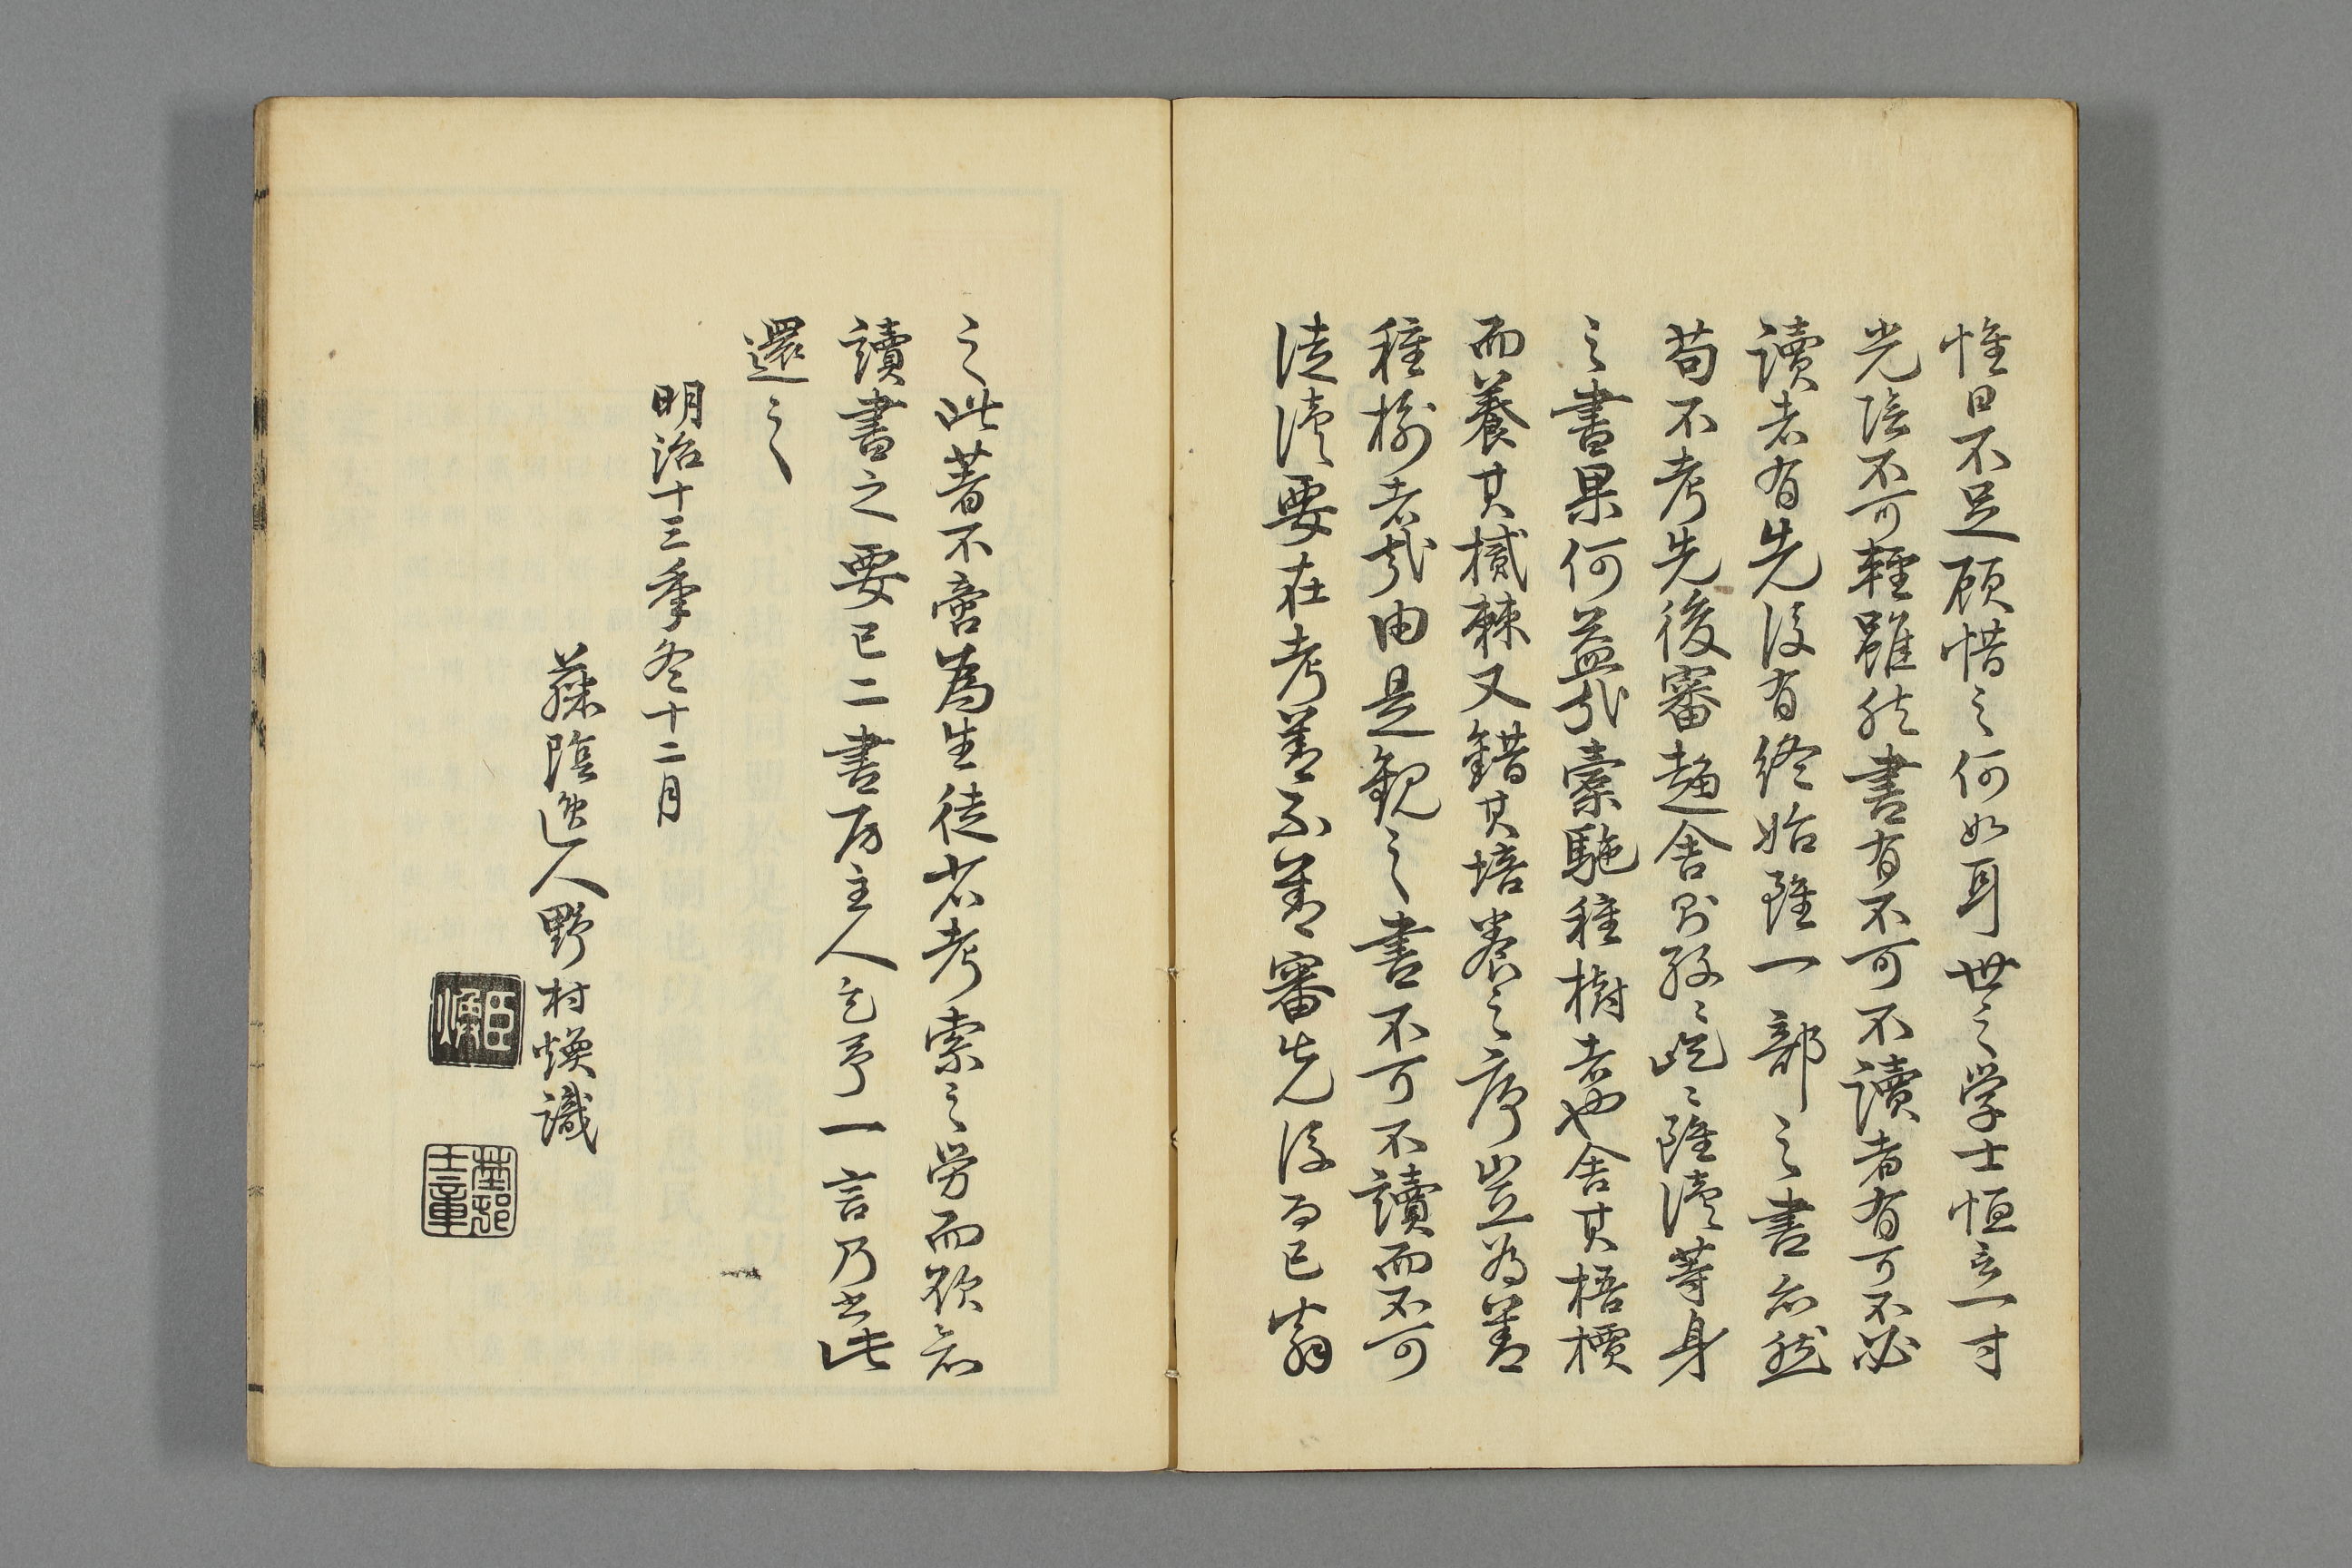 惟日不足顧惜之何如耳世之学士恒言一寸
光陰不可輕雖然書有不可不讀者有可不必
讀者有先後有終始雖一部之書亦然
苟不考先後審趨舍則孜〻屹〻雖讀等身
之書果何益哉橐駝種樹者也舍其梧檟
而養其樲棘又錯其培養之序豈為善
種樹者哉由是観之書不可不讀而不可
徒讀要在考善不善審先後而已翁
之此著不啻為生徒省考索之勞而欲示
讀書之要已二書房主人乞予一言乃書此
還之
明治十三季冬十二月
藤陰逸人野村煥識
臣煥